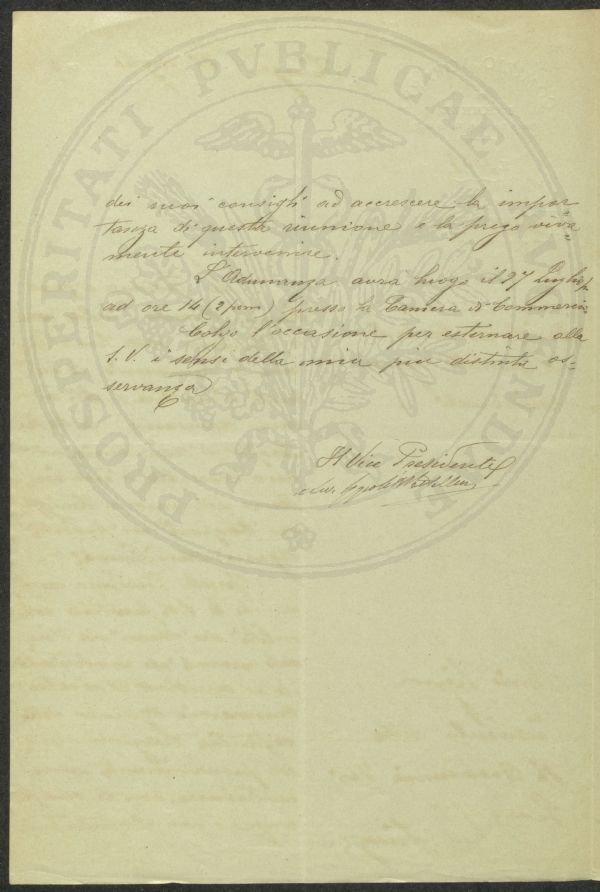 PROSPERITATI PVBLICAE
dei suoi consigli ad accrescere la impor
tanza di questa riunione e la prego viva=
mente intervenire.
L'Adunanza avrà luogo il 27 Luglio
ad ore 14 (2 pom) presso la Camera di Commercio
Colgo l'occasione per esternare alla
S. V. i sensi della mia più distinta os=
servanza
Il Vice Presidente